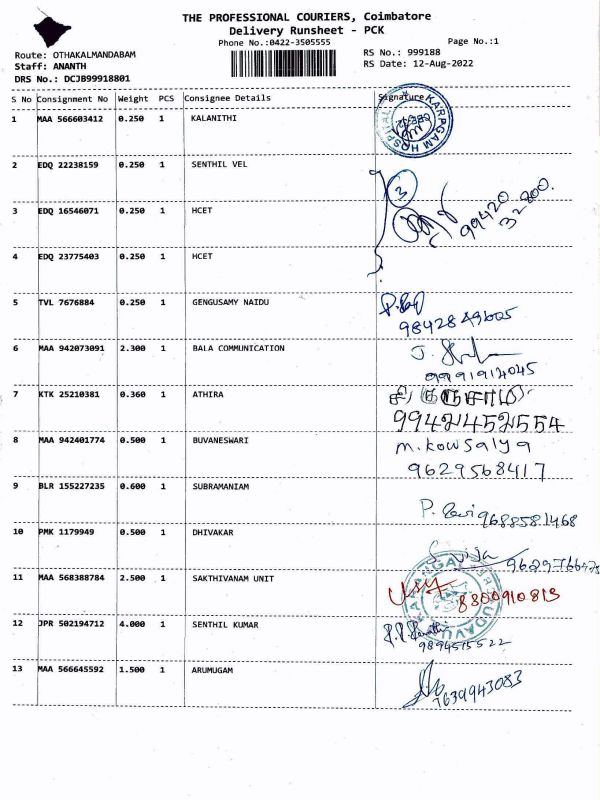 THE PROFESSIONAL COURIERS, Coimbatore
Delivery Runsheet - PCK
Phone No.:0422-3505555
Page No.:1
Route: OTHAKALMANDABAM
Staff: ANANTH
DRS No.: DCJB99918801
RS No.: 999188
RS Date: 12-Aug-2022
S No Consignment No Weight PCS Consignee Details Signature
1 MAA 566603412 0.250 1 KALANITHI
KARPAGAM HOSPITAL
2 EDQ 22238159 0.250 1 SENTHIL VEL
3
99420
32800.
3 EDQ 16546071 0.250 1 HCET
4 EDQ 23775403 0.250 1 HCET
5 TVL 7676884 0.250 1 GENGUSAMY NAIDU
6 MAA 942073091 2.300 1 BALA COMMUNICATION
7 KTK 25210381 0.360 1 ATHIRA
9942452554
8 MAA 942401774 0.500 1 BUVANESWARI
M.Kowsalya
9629568417
9 BLR 155227235 0.600 1 SUBRAMANIAM
9688581468
10 PMK 1179949 0.500 1 DHIVAKAR
11 MAA 568388784 2.500 1 SAKTHIVANAM UNIT
12 JPR 502194712 4.000 1 SENTHIL KUMAR
9894515522
13 MAA 566645592 1.500 1 ARUMUGAM
7639943083